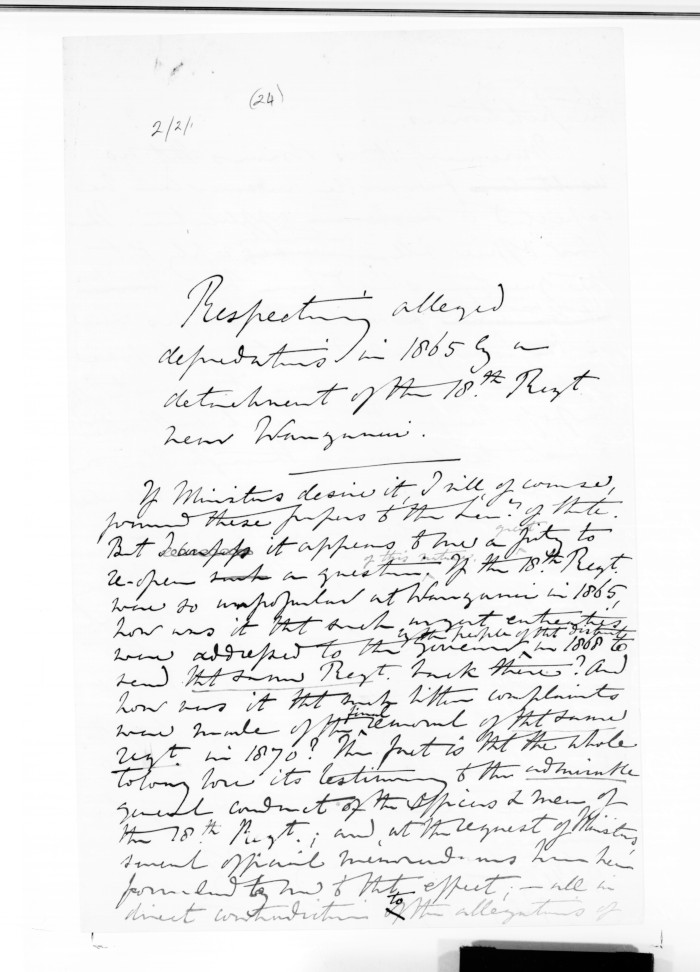 (24)
2/2/
Respecting alleged
depredations in 1865 by a
detachment of the 18.th Regt.
near Wanganui.
If Ministers desire it, I will, of course,
forward these papers to the Sec.y of State.
great
But it appears to me a pity to
of this nature.
re-open such a question. If the 18.th Regt.
were so unpopular at Wanganui in 1865,
how was it tht such urgent entreaties
by the people of tht district
were addressed to the Governmt in 1868 to
send tht same Regt. back there? And
how was it tht such bitter complaints
final
were made of the removal of tht same
regt. in 1870? The fact is tht the whole
Colony bore its testimony to the admirable
general conduct of the Officers & men of
the 18.th Regt.; and, at the request of Ministers,
several official memorandums have been
forwarded by me to tht effect; – all in
to
direct contradiction of the allegations of